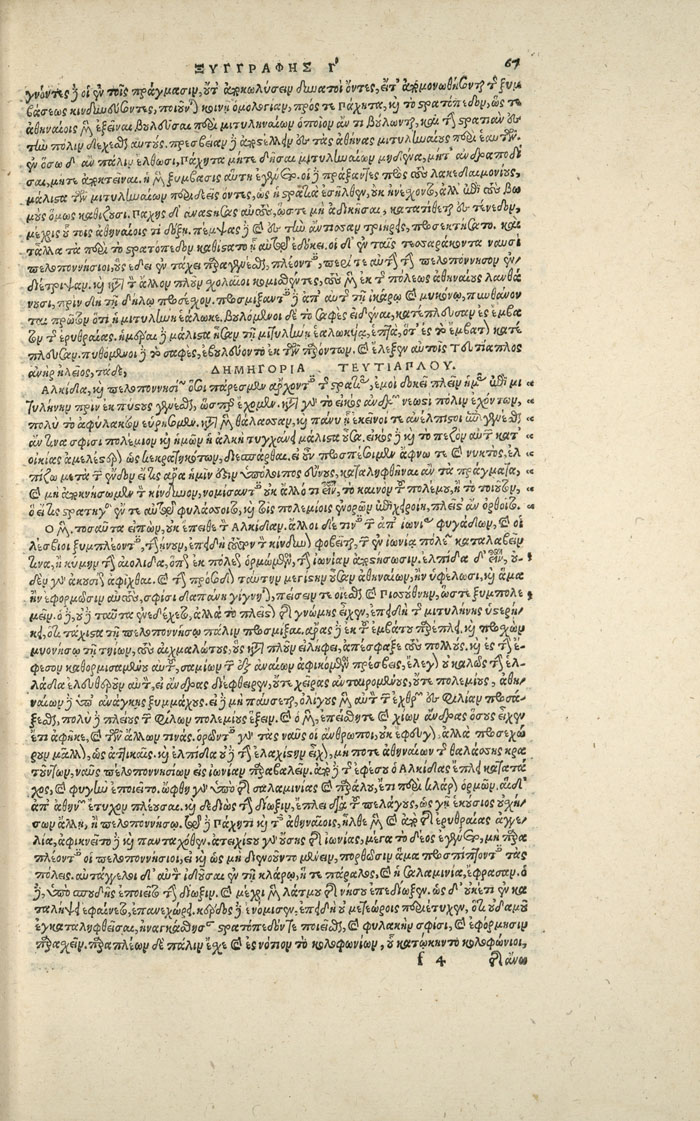 ΞΥΓΓΡΑΦΗΣ Γ 67
γνόντες δὲ οἱ ἐν τοῖς πράγμασιν, οὔτ' ἀποκωλύσειν δυνατοὶ ὄντες, εἴ τ' ἀπομονωθήσονται τῆς ξυμ
βάσεως κινδυνεύσοντες, ποιοῦνται κοινῇ ὁμολογίαν, πρός τε Πάχητα, καὶ τὸ στρατόπεδον, ὥστε
ἀθηναίοις μὲν ἐξεῖναι βουλεῦσαι περὶ μιτυληναίων ὁποῖον ἄν τι βούλωνται, καὶ τὴν στρατιὰν ἐς
τὴν πόλιν δέχεσθαι αὐτούς. πρεσβείαν δὲ ἀποστέλλειν ἐς τὰς ἀθήνας μιτυληναίους περὶ ἑαυτῶν.
ἐν ὅσῳ δ' ἂν πάλιν ἔλθωσι, Πάχητα μήτε δῆσαι μιτυληναίων μηδένα, μήτ' ἀνδραποδί
σαι, μήτε ἀποκτεῖναι. ἡ μὲν ξύμβασις αὕτη ἐγένετο. οἱ δὲ πράξαντες πρὸς τοὺς λακεδαιμονίους,
μάλιστα τῶν μιτυληναίων περιδεεῖς ὄντες, ὡς ἡ στρατιὰ ἐσῆλθεν, οὐκ ἠνέσχοντο, ἀλλ' ἐπὶ τοὺς βω
μοὺς ὅμως καθίζουσι. Πάχης δ' ἀναστήσας αὐτοὺς, ὥστε μὴ ἀδικῆσαι, κατατίθεται ἐς τένεδον,
μέχρις οὗ τοῖς ἀθηναίοις τι δόξῃ. πέμψας δὲ καὶ ἐς τὴν ἄντισσαν τριήρεις, προσεκτήσατο. καὶ
τἄλλα τὰ περὶ τὸ στρατόπεδον καθίστατο ᾗ αὐτῷ ἐδόκει. οἱ δ' ἐν ταῖς τεσσαράκοντα ναυσὶ
πελοποννήσιοι, οὓς ἔδει ἐν τάχει παραγενέσθαι, πλέοντες, περί τε αὐτὴν τὴν πελοπόννησον ἐν
διέτριψαν. καὶ κατὰ τὸν ἄλλον πλοῦν σχολαῖοι κομισθέντες, τοὺς μὲν ἐκ τῆς πόλεως ἀθηναίους λανθά
νουσι, πρὶν δὴ τῇ δήλῳ προσέσχον. προσμίξαντες δὲ ἀπ' αὐτῆς τῇ ἰκάρῳ καὶ μυκόνῳ, πυνθάνον
ται πρῶτον ὅτι ἡ μιτυλήνη ἑάλωκε. βουλόμενοι δὲ τὸ σαφὲς εἰδέναι, κατέπλευσαν ἐς ἔμβα
τον τῆς ἐρυθραίας. ἡμέραι δὲ μάλιστα ἦσαν τῇ μιτυλήνῃ ἑαλωκυίᾳ, ἑπτά, ὅτ' ἐς τὸ ἔμβατον κατέ
πλευσαν. πυθόμενοι δὲ τὸ σαφὲς, ἐβουλεύοντο ἐκ τῶν παρόντων. καὶ ἔλεξεν αὐτοῖς Τευτίαπλος
ἀνὴρ ἠλεῖος, τάδε, ΔΗΜΗΓΟΡΙΑ ΤΕΥΤΙΑΠΛΟΥ.
Ἀλκίδα, καὶ πελοποννησίων ὅσοι πάρεσμεν ἄρχοντες τῆς στρατιᾶς, ἐμοὶ δοκεῖ πλεῖν ἡμᾶς ἐπὶ μι
τυλήνην πρὶν ἐκπύστους γενέσθαι, ὥσπερ ἔχομεν. κατὰ γὰρ τὸ εἰκὸς ἀνδρῶν νεωστὶ πόλιν ἐχόντων,
πολὺ τὸ ἀφύλακτον εὑρήσομεν. κατὰ μὲν θάλασσαν, καὶ πάνυ ᾗ ἐκεῖνοί τε ἀνέλπιστοι ἐπιγενέσθαι
ἄν τινα σφίσι πολέμιον καὶ ἡμῶν ἡ ἀλκὴ τυγχάνει μάλιστα οὖσα, εἰκὸς δὲ καὶ τὸ πεζὸν αὐτῶν κατ'
οἰκίας ἀμελέστερον ὡς κεκρατηκότων, διεσπάρθαι. εἰ οὖν προσπέσοιμεν ἄφνω τε καὶ νυκτὸς, ἐλ
πίζω μετὰ τῶν ἔνδον εἴ τις ἄρα ἡμῖν ἐστὶν ὑπόλοιπος εὔνους, καταληφθῆναι ἂν τὰ πράγματα,
καὶ μὴ ἀποκνήσωμεν τὸν κίνδυνον, νομίσαντες οὐκ ἄλλό τι εἶναι, τὸ καινὸν τοῦ πολέμου, ἢ τὸ τοιοῦτον,
ὃ εἴ τις στρατηγὸς ἔν τε αὑτῷ φυλάσσοιτο, καὶ τοῖς πολεμίοις ἐνορῶν ἐπιχειροίη, πλεῖστ' ἂν ὀρθοῖτο.
Ὁ μὲν τοσαῦτα εἰπὼν, οὐκ ἔπειθε τὸν Ἀλκίδαν. ἄλλοι δέ τινες τῶν ἀπ' ἰωνίας φυγάδων, καὶ οἱ
λέσβιοι ξυμπλέοντες, παρῄνουν, ἐπειδὴ τοῦτον τὸν κίνδυνον φοβεῖται, τῶν ἐν ἰωνίᾳ πόλεων καταλαβεῖν
τινα, ἢ κύμην τὴν αἰολίδα, ὅπως ἐκ πόλεως ὁρμώμενοι, τὴν ἰωνίαν ἀποστήσωσιν. ἐλπίδα δ' εἶναι, οὐ
δενὶ γὰρ ἀκουσίως ἀφῖχθαι. καὶ τὴν πρόσοδον ταύτην μεγίστην οὖσαν ἀθηναίων, ἢν ὑφέλωσι, καὶ ἅμα
ἢν ἐφορμῶσιν αὐτοὺς, σφίσι δαπάνη γίγνηται, πείσειν τε οἴεσθαι καὶ Πισσούθνην, ὥστε ξυμπολε
μεῖν. ὁ δὲ, οὐδὲ ταῦτα ἐνεδέχετο, ἀλλὰ τὸ πλεῖστον τῆς γνώμης εἶχεν, ἐπειδὴ τῆς μιτυλήνης ὑστερή
κει, ὅτι τάχιστα τῇ πελοποννήσῳ πάλιν προσμῖξαι. ἄρας δὲ ἐκ τοῦ ἐμβάτου παρέπλει. καὶ προσσχὼν
μυοννήσῳ τῇ τηίων, τοὺς αἰχμαλώτους, οὓς κατὰ πλοῦν εἰλήφει, ἀπέσφαξε τοὺς πολλούς. καὶ ἐς τὴν ἔ
φεσον καθορμισαμένου αὐτοῦ, σαμίων τῶν ἐξ ἀναίων ἀφικόμενοι πρέσβεις, ἔλεγον οὐ καλῶς τὴν ἑλ
λάδα ἐλευθεροῦν αὐτὸν, εἰ ἄνδρας διέφθειρεν, οὔτε χεῖρας ἀνταιρομένους, οὔτε πολεμίους, ἀθη
ναίων δὲ ὑπὸ ἀνάγκης ξυμμάχους. εἰ δὲ μὴ παύσεται, ὀλίγους μὲν αὐτὸν τῶν ἐχθρῶν ἐς φιλίαν προσά
ξεσθαι, πολὺ δὲ πλείους τῶν φίλων πολεμίους ἕξειν. καὶ ὁ μὲν, ἐπείσθη τε καὶ χίων ἄνδρας ὅσους εἶχεν
ἔτι ἀφῆκε, καὶ τῶν ἄλλων τινάς. ὁρῶντες γὰρ τὰς ναῦς οἱ ἄνθρωποι, οὐκ ἔφευγον, ἀλλὰ προσεχώ
ρουν μᾶλλον, ὡς ἀττικαῖς. καὶ ἐλπίδα οὐδὲ τὴν ἐλαχίστην εἶχον, μή ποτε ἀθηναίων τῆς θαλάσσης κρα
τούντων, ναῦς πελοποννησίων εἰς ἰωνίαν παραβαλεῖν. ἀπὸ δὲ τῆς ἐφέσου ὁ Ἀλκίδας ἔπλει κατὰ τά
χος, καὶ φυγὴν ἐποιεῖτο. ὤφθη γὰρ ὑπὸ τῆς σαλαμινίας καὶ παράλου, ἔτι περὶ κλάρον ὁρμῶν. αἱ δ'
ἀπ' ἀθηνῶν ἔτυχον πλέουσαι. καὶ δεδιὼς τὴν δίωξιν, ἔπλει διὰ τοῦ πελάγους, ὡς γῇ ἑκούσιος οὐ σχή
σων ἄλλῃ, ἢ πελοποννήσῳ. τῷ δὲ Πάχητι καὶ τοῖς ἀθηναίοις, ἦλθε μὲν καὶ ἀπὸ τῆς ἐρυθραίας ἀγγε
λία, ἀφικνεῖτο δὲ καὶ πανταχόθεν. ἀτειχίστου γὰρ οὔσης τῆς ἰωνίας, μέγα τὸ δέος ἐγένετο, μὴ παρα
πλέοντες οἱ πελοποννήσιοι, εἰ καὶ ὣς μὴ διενοοῦντο μένειν, πορθῶσιν ἅμα προσπίπτοντες τὰς
πόλεις. αὐτάγγελοι δ' αὐτὸν ἰδοῦσαι ἐν τῇ κλάρῳ, ἥ τε πάραλος, καὶ ἡ σαλαμινία, ἔφρασαν. ὁ
δὲ, ὑπὸ σπουδῆς ἐποιεῖτο τὴν δίωξιν. καὶ μέχρι μὲν λάτμου τῆς νήσου ἐπεδίωξεν. ὡς δ' οὐκέτι ἐν κα
ταλήψει ἐφαίνετο, ἐπανεχώρει. κέρδος δὲ ἐνόμισεν, ἐπειδὴ οὐ μετεώροις περιέτυχεν, ὅτι οὐδαμοῦ
ἐγκαταληφθεῖσαι, ἠναγκάσθησαν στρατόπεδόν τε ποιεῖσθαι, καὶ φυλακὴν σφίσι, καὶ ἐφόρμησιν
παρασχεῖν. παραπλέων δὲ πάλιν ἔσχε καὶ ἐς νότιον τὸ κολοφωνίων, οὗ κατῴκηντο κολοφώνιοι,
f 4 τῆς ἄνω